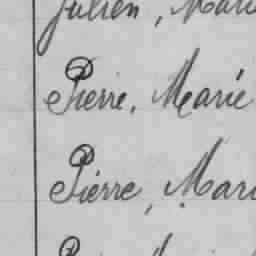 Julien, Marie
Pierre, Marie
Pierre, Mari